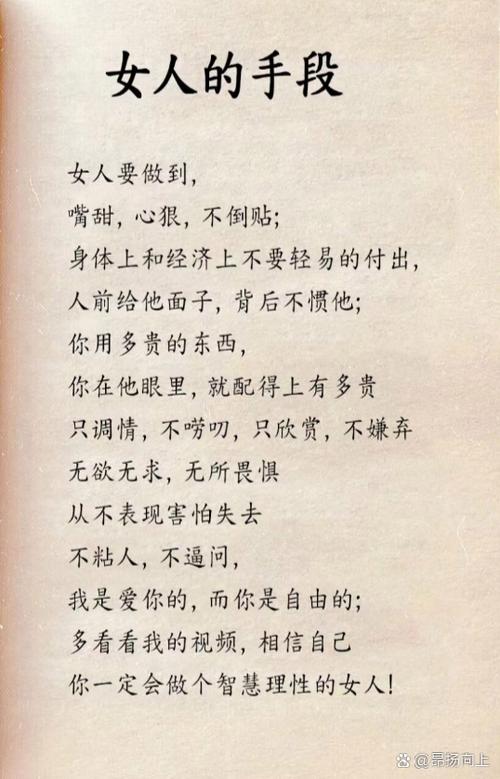 女人的手段
女人要做到，
嘴甜，心狠，不倒贴；
身体上和经济上不要轻易的付出，
人前给他面子，背后不惯他；
你用多贵的东西，
你在他眼里，就配得上有多贵
只调情，不唠叨，只欣赏，不嫌弃
无欲无求，无所畏惧
从不表现害怕失去
不粘人，不逼问，
我是爱你的，而你是自由的；
多看看我的视频，相信自己
你一定会做个智慧理性的女人！
@昂扬向上